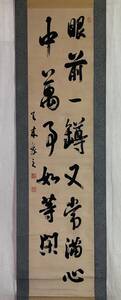 眼前一鐏又常滿心
中萬事如等閑